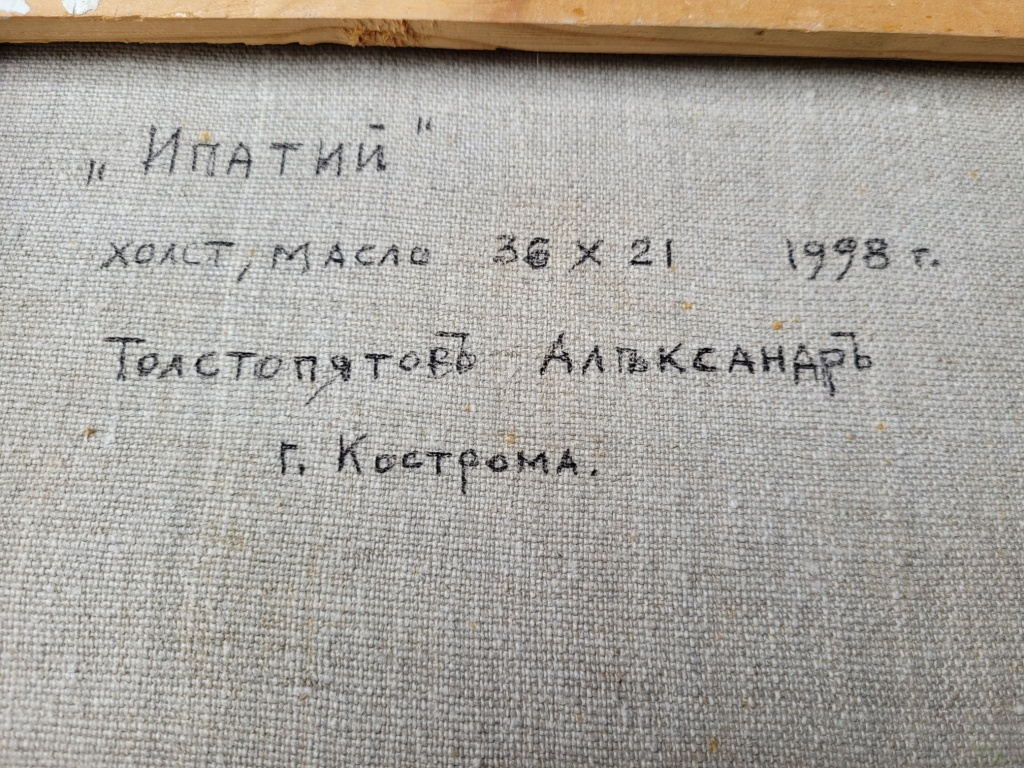 „Ипатий"
холст, масло 36 х 21 1998 г.
Толстопятовъ Алѣксандръ
г. Кострома.